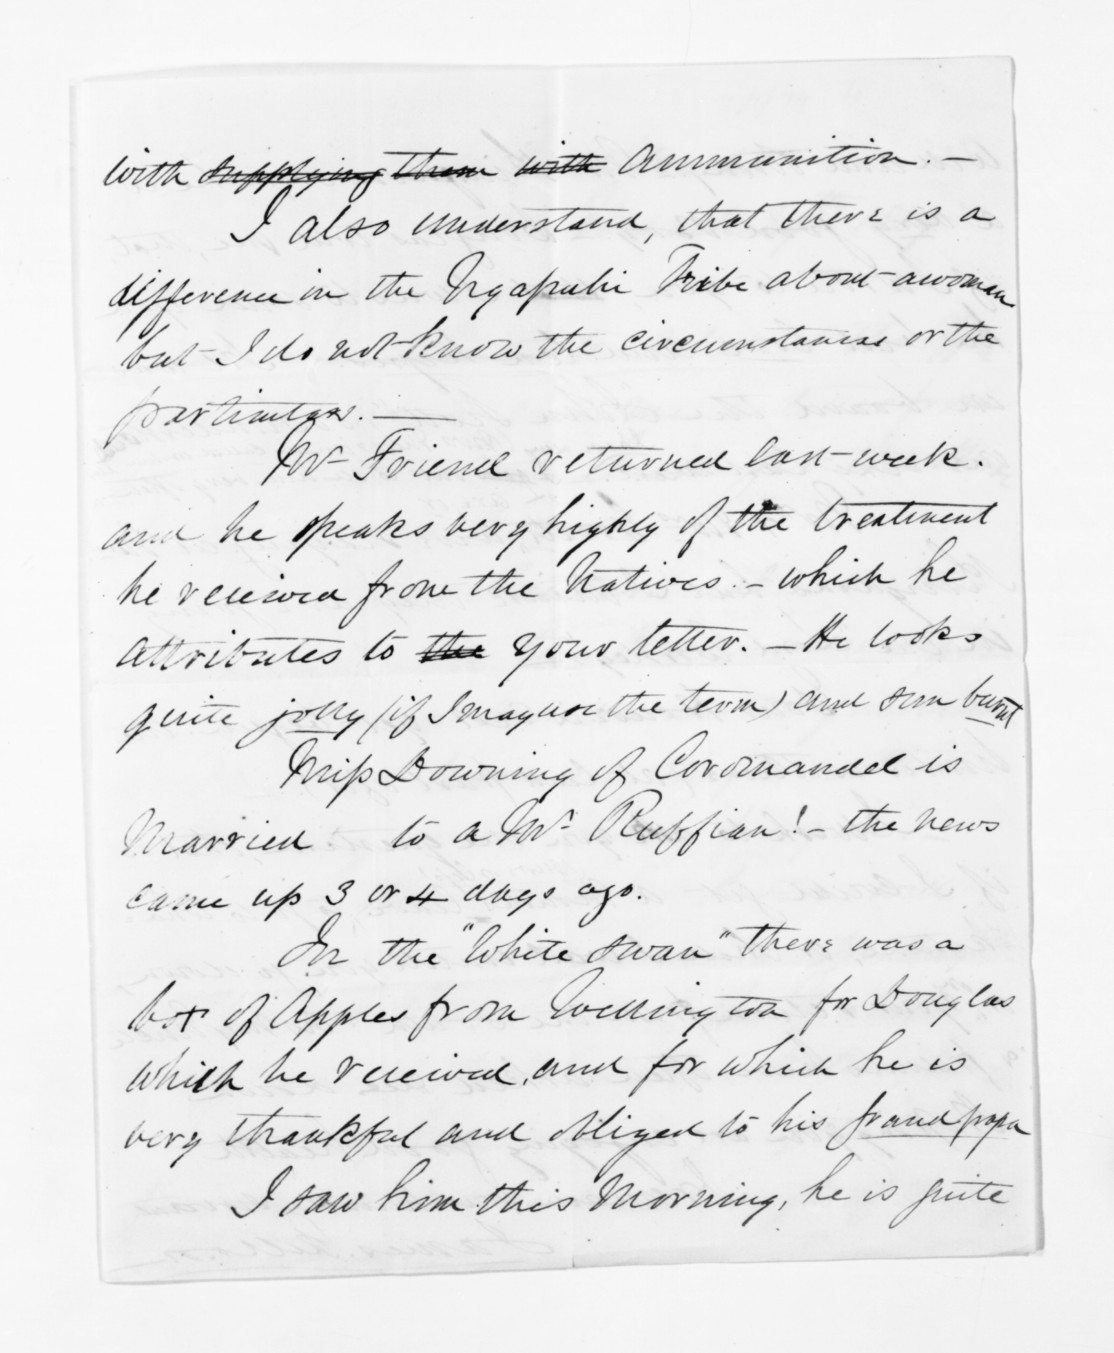 with supplying them with ammunition. —
I also understand, that there is a
difference in the Ngapuhi Tribe about a woman
but I do not know the circumstances or the
particulars. —
Mr Friend returned last week.
and he speaks very highly of the treatment
he received from the Natives. — which he
attributes to the your letter. — He looks
quite jolly (if I may use the term) and sun burnt
Miss Downing of Coromandel is
Married to a Mr Ruffian! — the news
came up 3 or 4 days ago.
In the "White Swan" there was a
box of Apples from Wellington for Douglas
which he received, and for which he is
very thankful and obliged to his Grandpapa
I saw him this Morning, he is quite